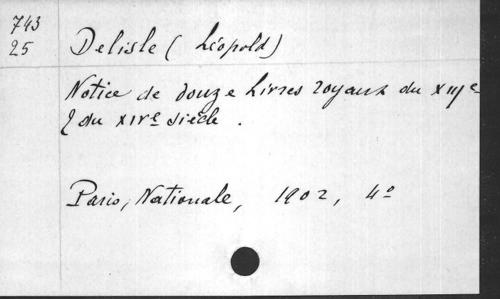 743
25
Delisle (Léopold)
Notice de douze Livres royaux du XIIIe
& du XIVe siècle.
Paris, Nationale, 1902, 4o